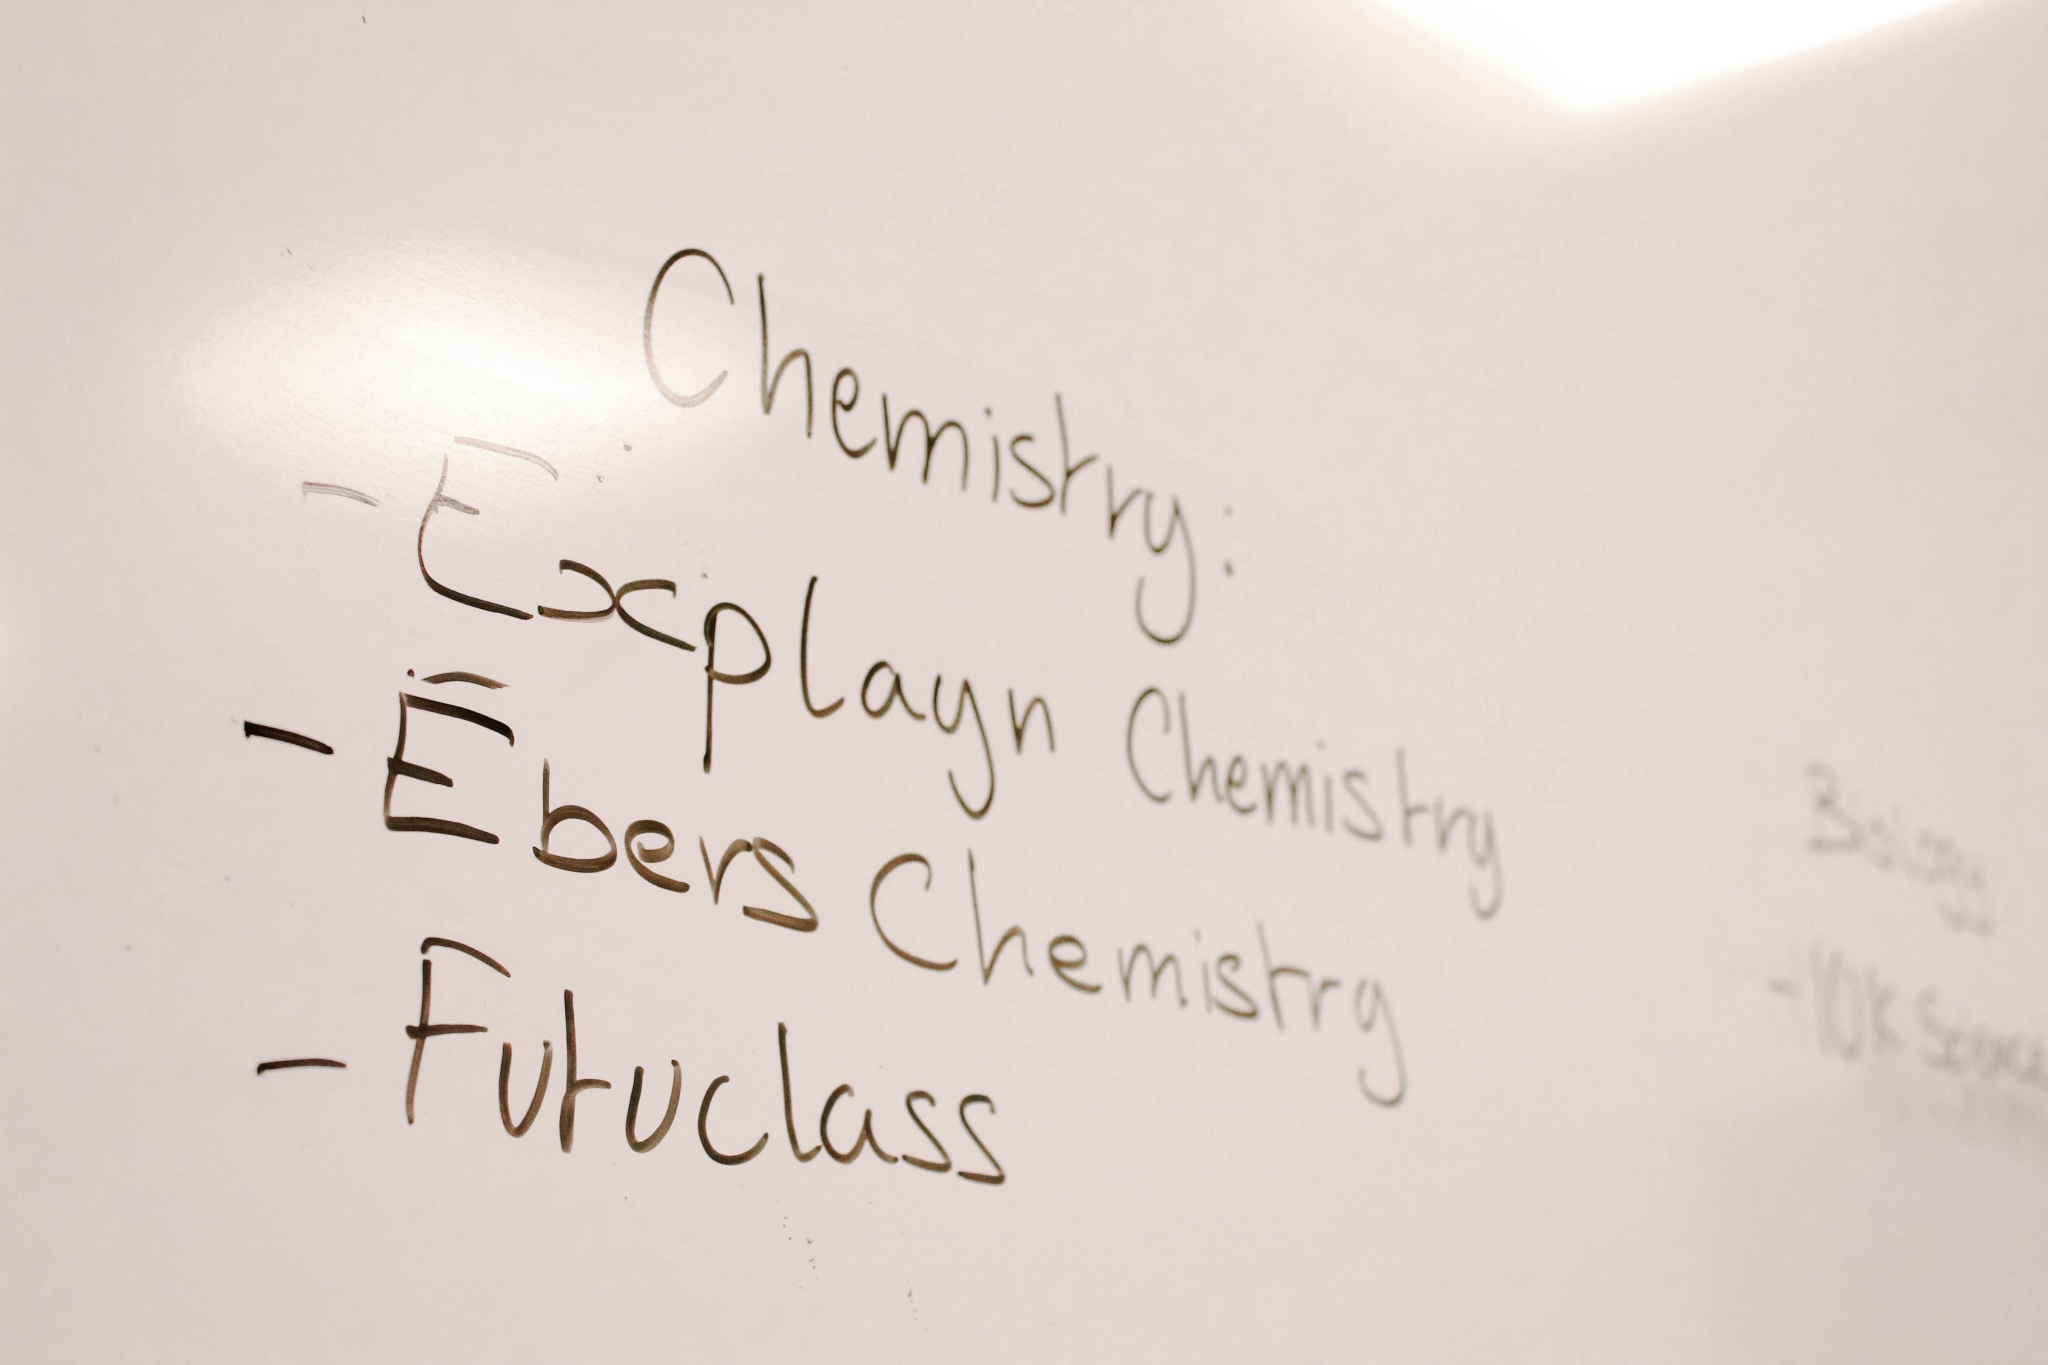 Chemistry:
- Explayn Chemistry
- Ebers Chemistry
- Futuclass
Biology
- 10k Science